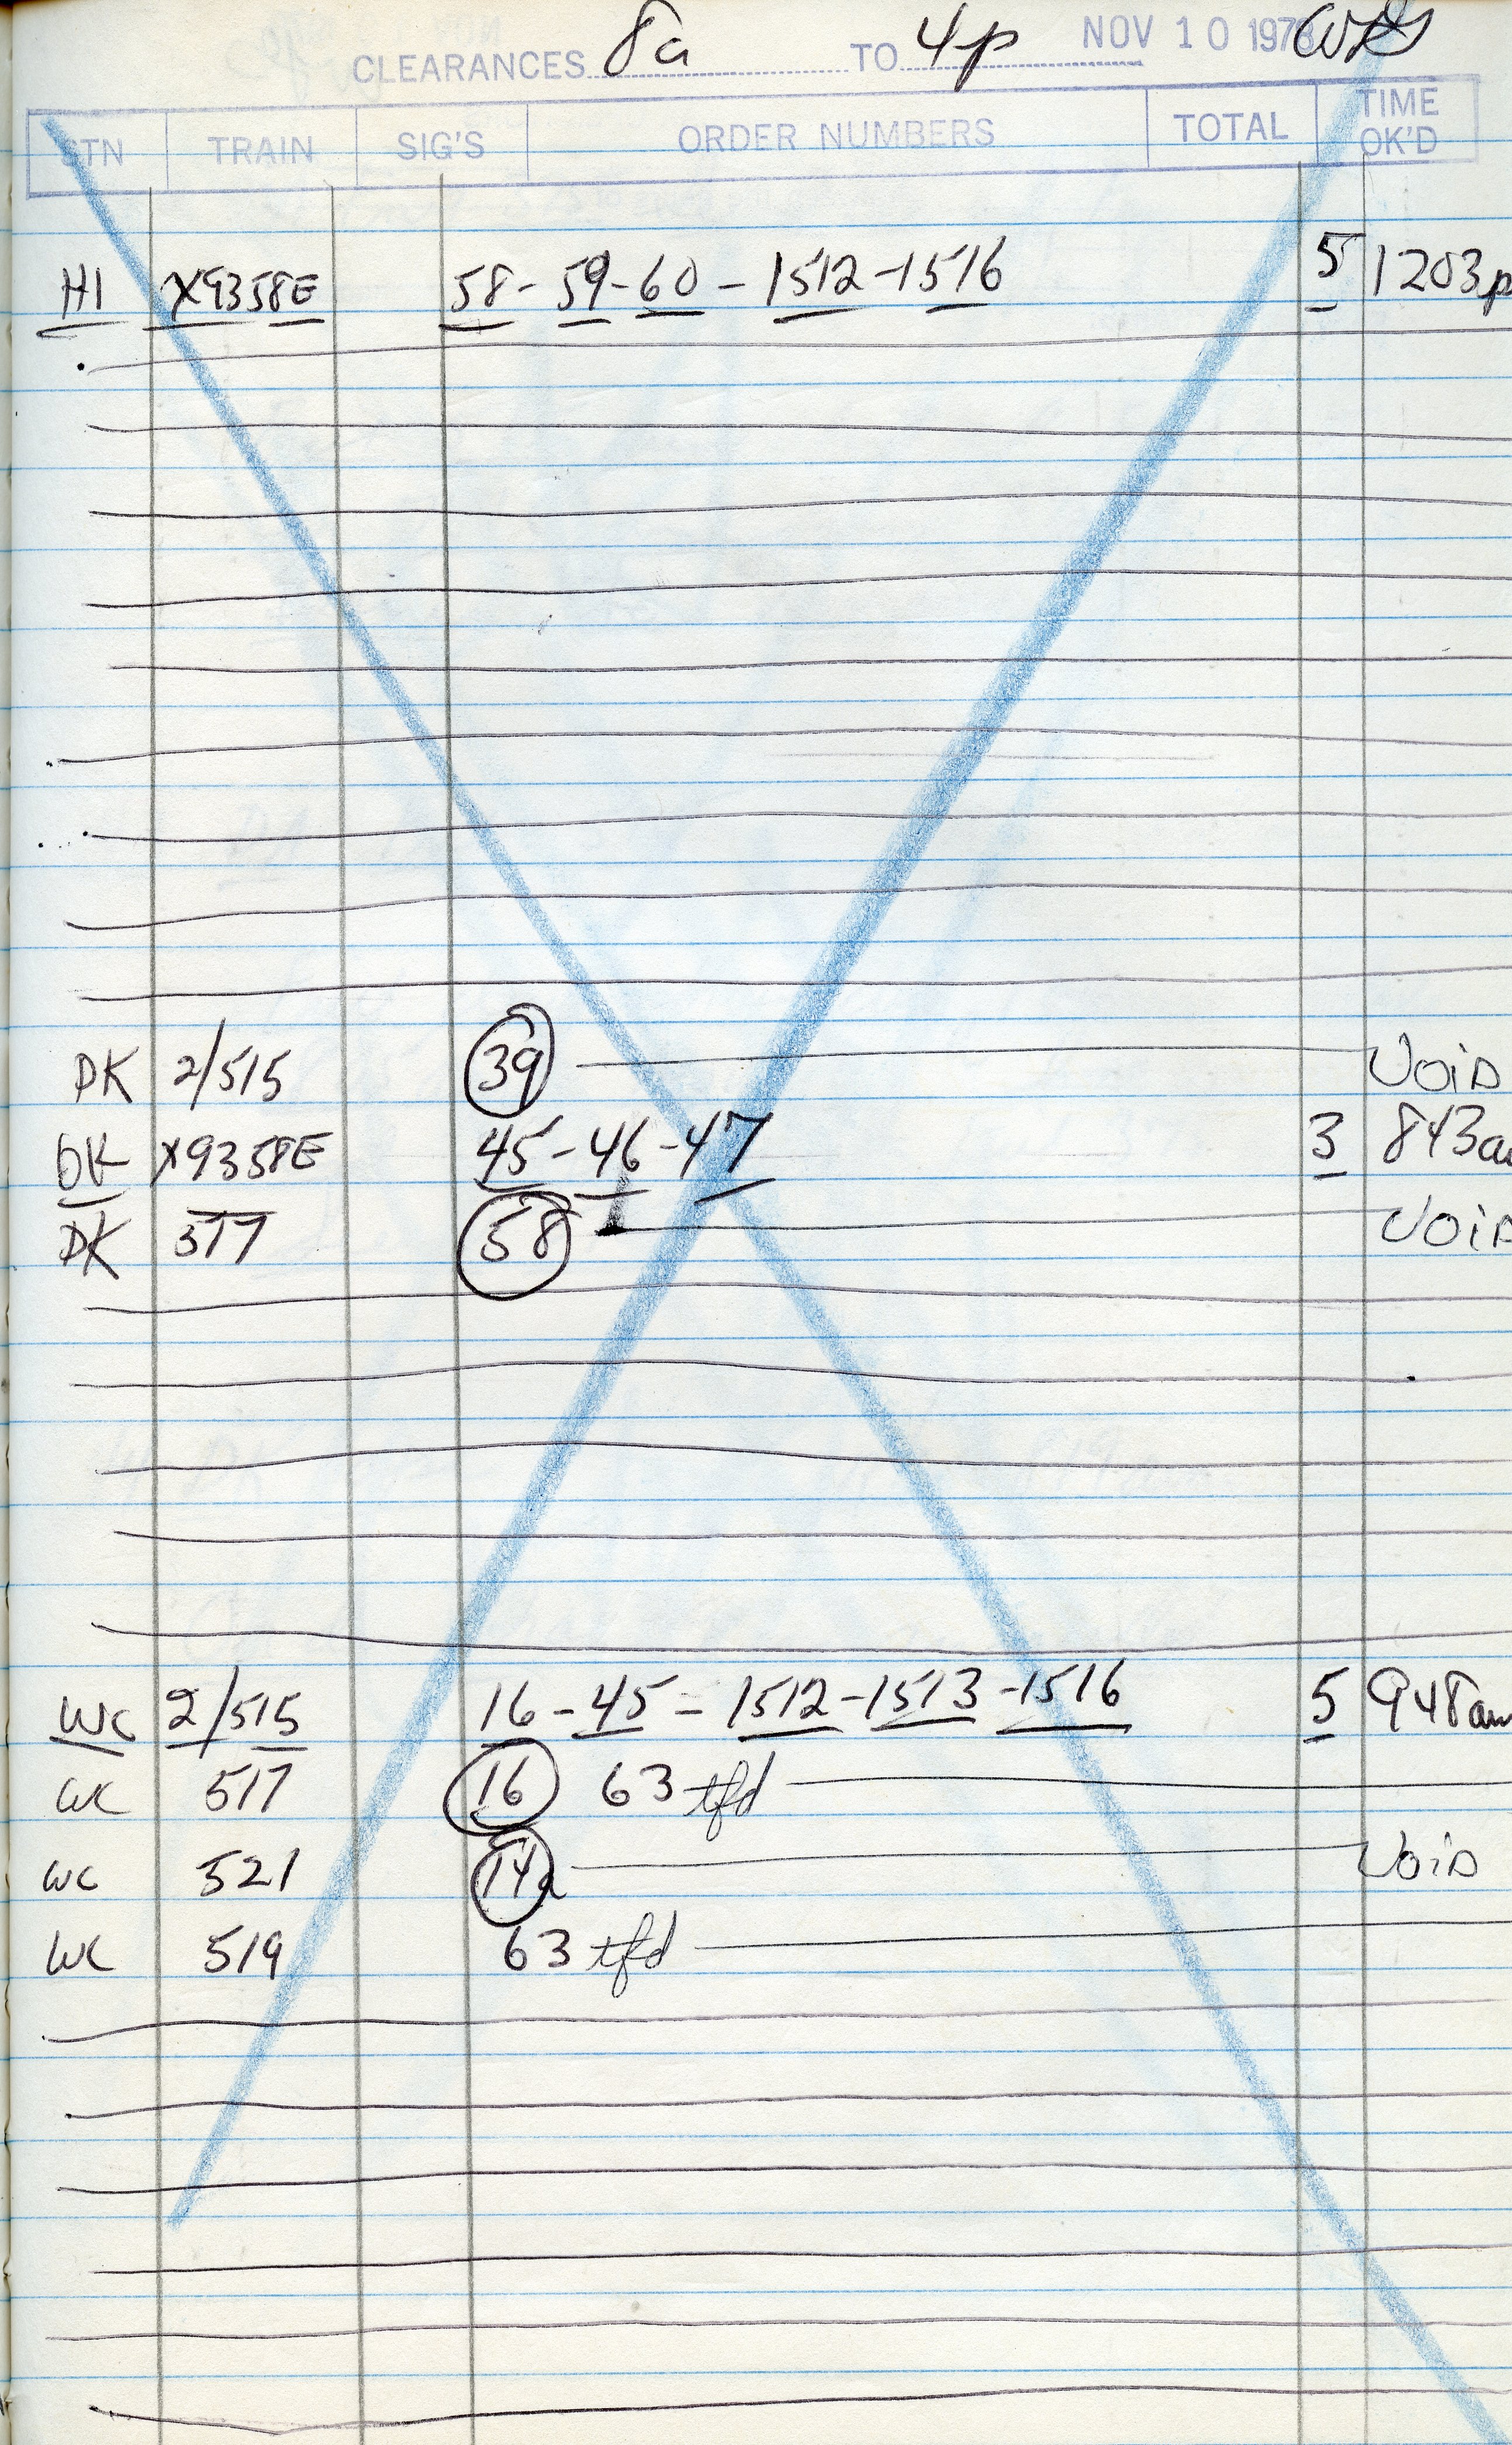 CLEARANCES 8a TO 4p NOV 10 197
STN TRAIN SIG'S ORDER NUMBERS TOTAL TIME OK'D
HI X9358E 58-59-60-1512-1516 5 1203p
DK 2/515 39 VOID
DK X9358E 45-46-47 3 843a
DK 517 58 VOID
WC 2/515 16-45-1512-1513-1516 5 948am
WC 517 16 63 tfd
WC 521 14a VOID
WC 519 63 tfd